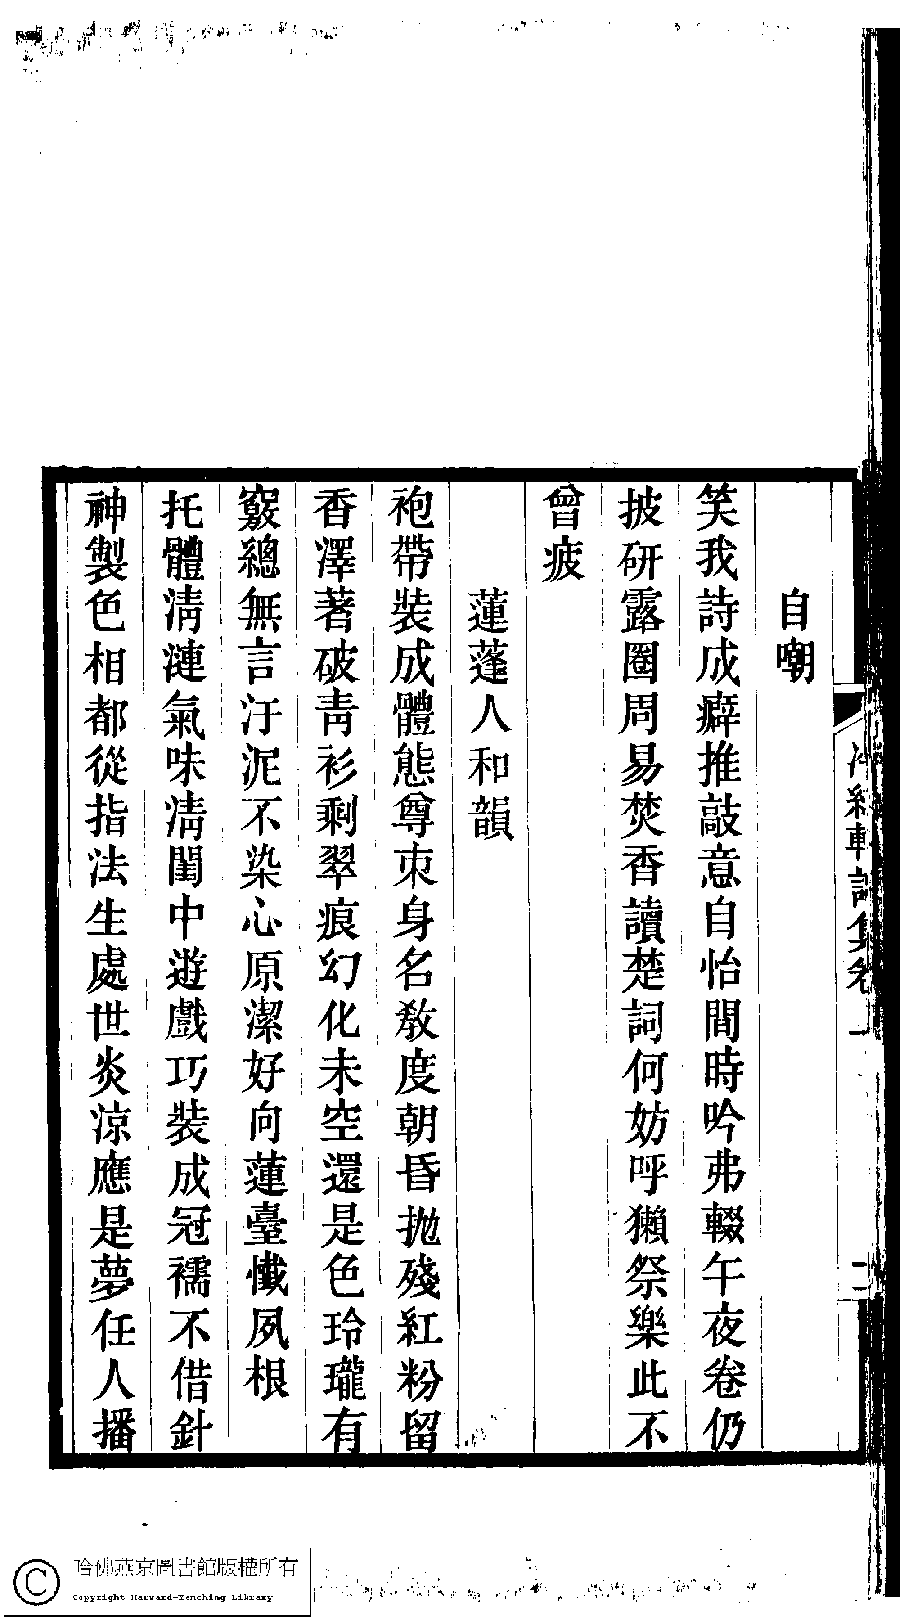 自嘲
笑我詩成癖推敲意自怡間時吟弗輟午夜卷仍
披研露圈周易焚香讀楚詞何妨呼獺祭樂此不
曾疲
蓮蓬人和韻
袍帶裝成體態尊朿身名敎度朝昏拋殘紅粉留
香澤著破靑衫剩翠痕幻化未空還是色玲瓏有
竅總無言汙泥不染心原潔好向蓮臺懺夙根
托體淸漣氣味淸閨中遊戲巧裝成冠襦不借針
神製色相都從指法生處世炎涼應是夢任人播
軒詩集卷上
二
哈佛燕京圖書館版權所有
Copyright Harvard-Yenching Library